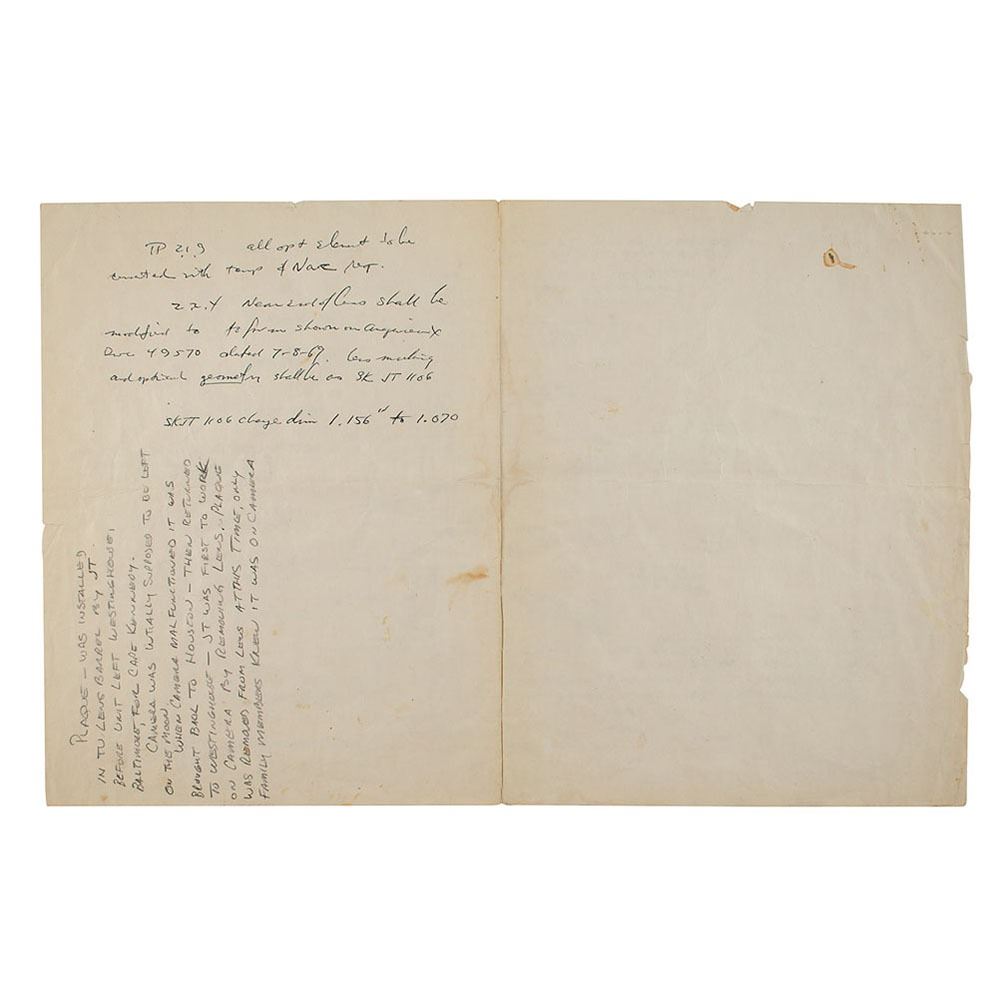 TP 2.1.9 all opt element to be
cemented with temp of Nov. rept.
2.2.4 Near end of lens shall be
modified to form shown on Angenieux
Dwc 49570 dated 7-8-69. Lens marking
and optical geometry shall be as SK JT 1106
SKJT 1106 change dim 1.156" to 1.070
PLAQUE - WAS INSTALLED
IN TU LENS BARREL BY JT
BEFORE UNIT LEFT WESTINGHOUSE,
BALTIMORE, FOR CAPE KENNEDY.
CAMERA WAS INTIALLY SUPPOSED TO BE LEFT
ON THE MOON
WHEN CAMERA MALFUNCTIONED IT WAS
BROUGHT BACK TO HOUSTON - THEN RETURNED
TO WESTINGHOUSE - JT WAS FIRST TO WORK
ON CAMERA BY REMOVING LENS. PLAQUE
WAS REMOVED FROM LENS AT THIS TIME, ONLY
FAMILY MEMBERS KNEW IT WAS ON CAMERA